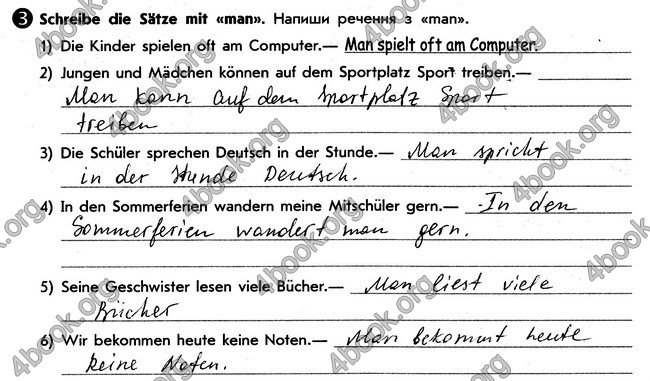 3 Schreibe die Sätze mit «man». Напиши речення з «man».
1) Die Kinder spielen oft am Computer.— Man spielt oft am Computer.
2) Jungen und Mädchen können auf dem Sportplatz Sport treiben.—
Man kann auf dem Sportplatz Sport
treiben
3) Die Schüler sprechen Deutsch in der Stunde.— Man spricht
in der Stunde Deutsch.
4) In den Sommerferien wandern meine Mitschüler gern.— In den
Sommerferien wandert man gern.
5) Seine Geschwister lesen viele Bücher.— Man liest viele
Bücher
6) Wir bekommen heute keine Noten.— Man bekommt heute
keine Noten.
4book.org